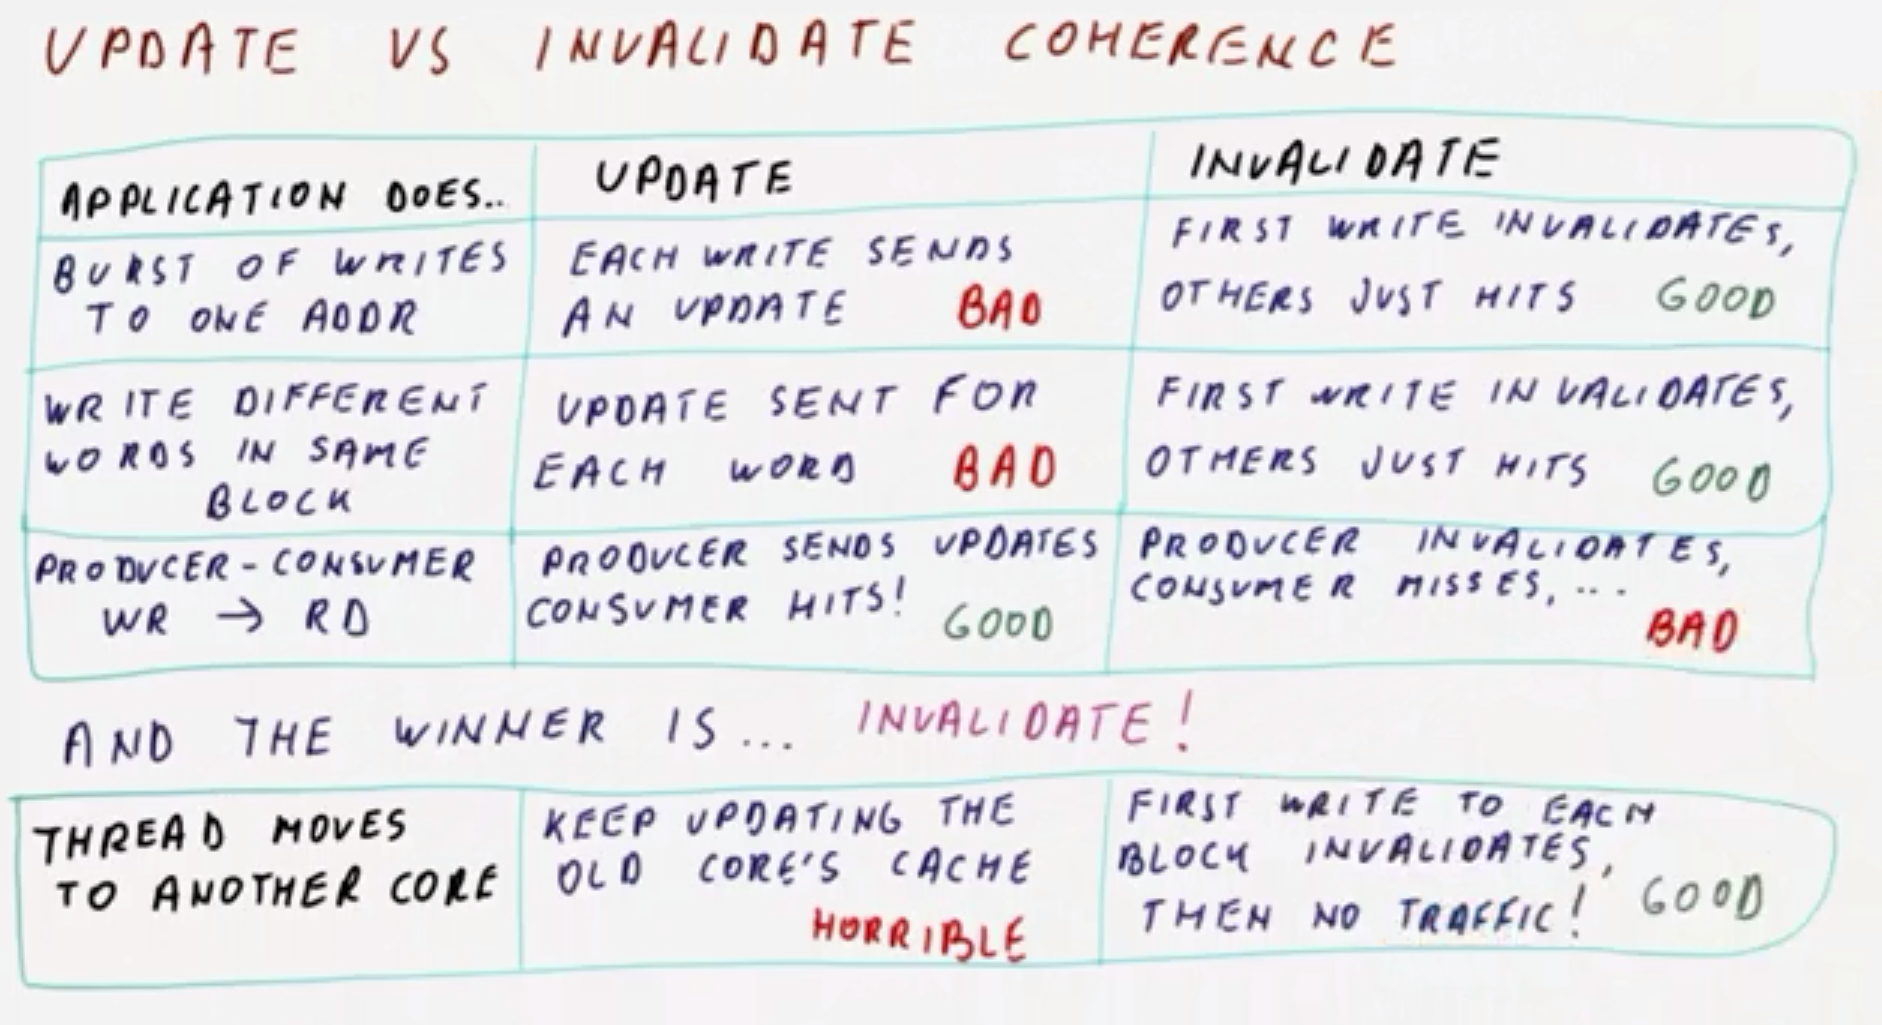 UPDATE VS INVALIDATE COHERENCE
APPLICATION DOES..
UPDATE
INVALIDATE
BURST OF WRITES
TO ONE ADDR
EACH WRITE SENDS
AN UPDATE BAD
FIRST WRITE INVALIDATES,
OTHERS JUST HITS GOOD
WRITE DIFFERENT
WORDS IN SAME
BLOCK
UPDATE SENT FOR
EACH WORD BAD
FIRST WRITE INVALIDATES,
OTHERS JUST HITS GOOD
PRODUCER-CONSUMER
WR → RD
PRODUCER SENDS UPDATES
CONSUMER HITS! GOOD
PRODUCER INVALIDATES,
CONSUMER MISSES, ...
BAD
AND THE WINNER IS... INVALIDATE!
THREAD MOVES
TO ANOTHER CORE
KEEP UPDATING THE
OLD CORE'S CACHE
HORRIBLE
FIRST WRITE TO EACH
BLOCK INVALIDATES,
THEN NO TRAFFIC! GOOD